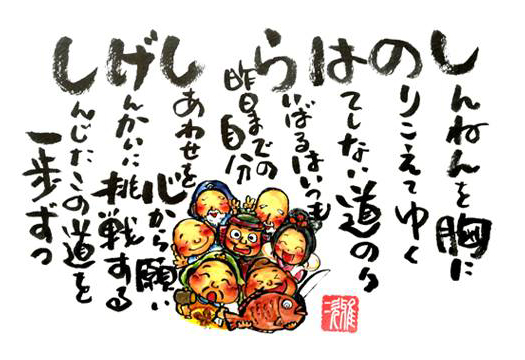 しんねんを胸に
のりこえてゆく
はてしない道のり
らいばるはいつも
昨日までの自分
しあわせを心から願い
げんかいに挑戦する
しんじたこの道を
一歩ずつ